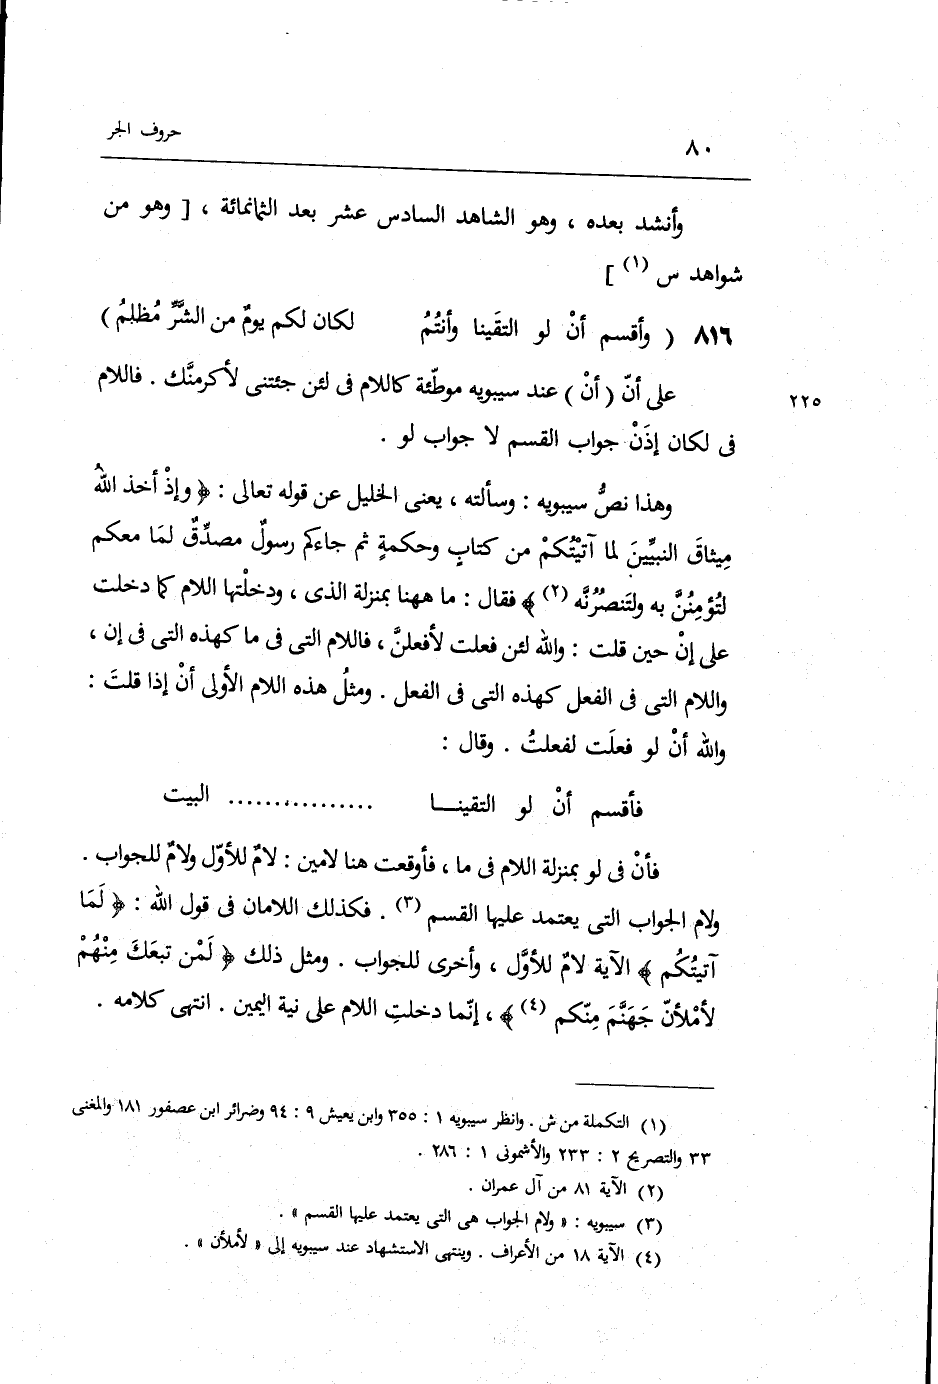 ٨٠ حروف الجر
وأنشد بعده ، وهو الشاهد السادس عشر بعد الثمانمائة ، [ وهو من
شواهد س (١) ]
٨١٦ ( وأقسم أنْ لو التقَينا وأنتُمُ لكان لكم يومٌ من الشَّرِّ مُظلِمُ )
على أنّ ( أنْ ) عند سيبويه موطّئة كاللام فى لئن جئتنى لأكرمنَّك . فاللام ٢٢٥
فى لكان إذَنْ جواب القسم لا جواب لو .
وهذا نصُّ سيبويه : وسألته ، يعنى الخليل عن قوله تعالى : ﴿ وإذْ أخذ اللهُ
مِيثاقَ النبيِّينَ لما آتيْتُكمْ من كتابٍ وحكمةٍ ثم جاءكم رسولٌ مصدِّقٌ لمَا معكم
لتُؤمِنُنَّ به ولتَنصرُنَّه (٢) ﴾ فقال : ما ههنا بمنزلة الذى ، ودخلْتها اللام كما دخلت
على إنْ حين قلت : والله لئن فعلت لأفعلنَّ ، فاللام التى فى ما كهذه التى فى إن ،
واللام التى فى الفعل كهذه التى فى الفعل . ومثلُ هذه اللام الأولى أنْ إذا قلتَ :
والله أنْ لو فعلَت لفعلتُ . وقال :
فأقسم أنْ لو التقينـــا ................ البيت
فأنْ فى لو بمنزلة اللام فى ما ، فأوقعت هنا لامين : لامٌ للأوّل ولامٌ للجواب .
ولام الجواب التى يعتمد عليها القسم (٣) . فكذلك اللامان فى قول الله : ﴿ لَمَا
آتيتُكُم ﴾ الآية لامٌ للأوَّل ، وأخرى للجواب . ومثل ذلك ﴿ لَمْن تبعَكَ مِنْهُمْ
لأمْلأنّ جَهَنَّمَ مِنّكم (٤) ﴾ ، إنّما دخلتِ اللام على نية اليمين . انتهى كلامه .
(١) التكملة من ش . وانظر سيبويه ١ : ٣٥٥ وابن يعيش ٩ : ٩٤ وضرائر ابن عصفور ١٨١ والمغنى
٣٣ والتصريح ٢ : ٢٣٣ والأشمونى ١ : ٢٨٦ .
(٢) الآية ٨١ من آل عمران .
(٣) سيبويه : « ولام الجواب هى التى يعتمد عليها القسم » .
(٤) الآية ١٨ من الأعراف . وينتهى الاستشهاد عند سيبويه إلى « لأملأن » .